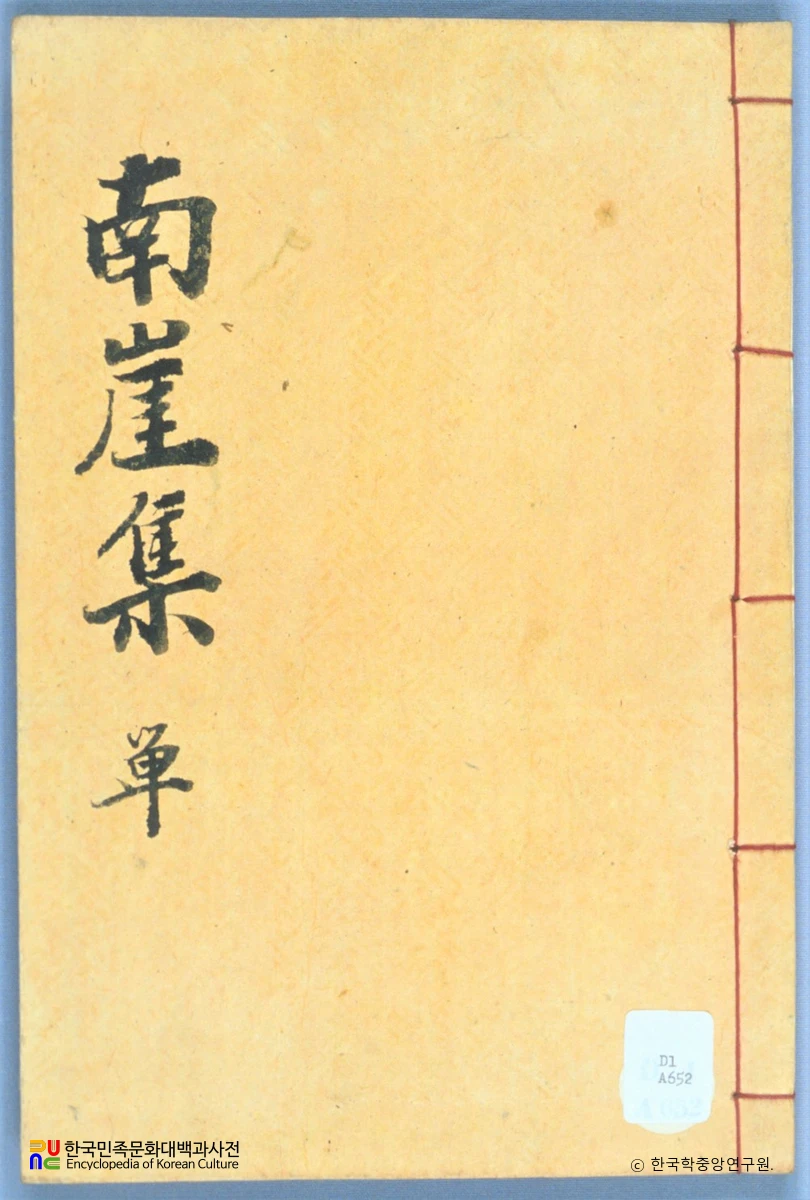 南崖集 単
D1
A652
한국민족문화대백과사전
Encyclopedia of Korean Culture
ⓒ 한국학중앙연구원.